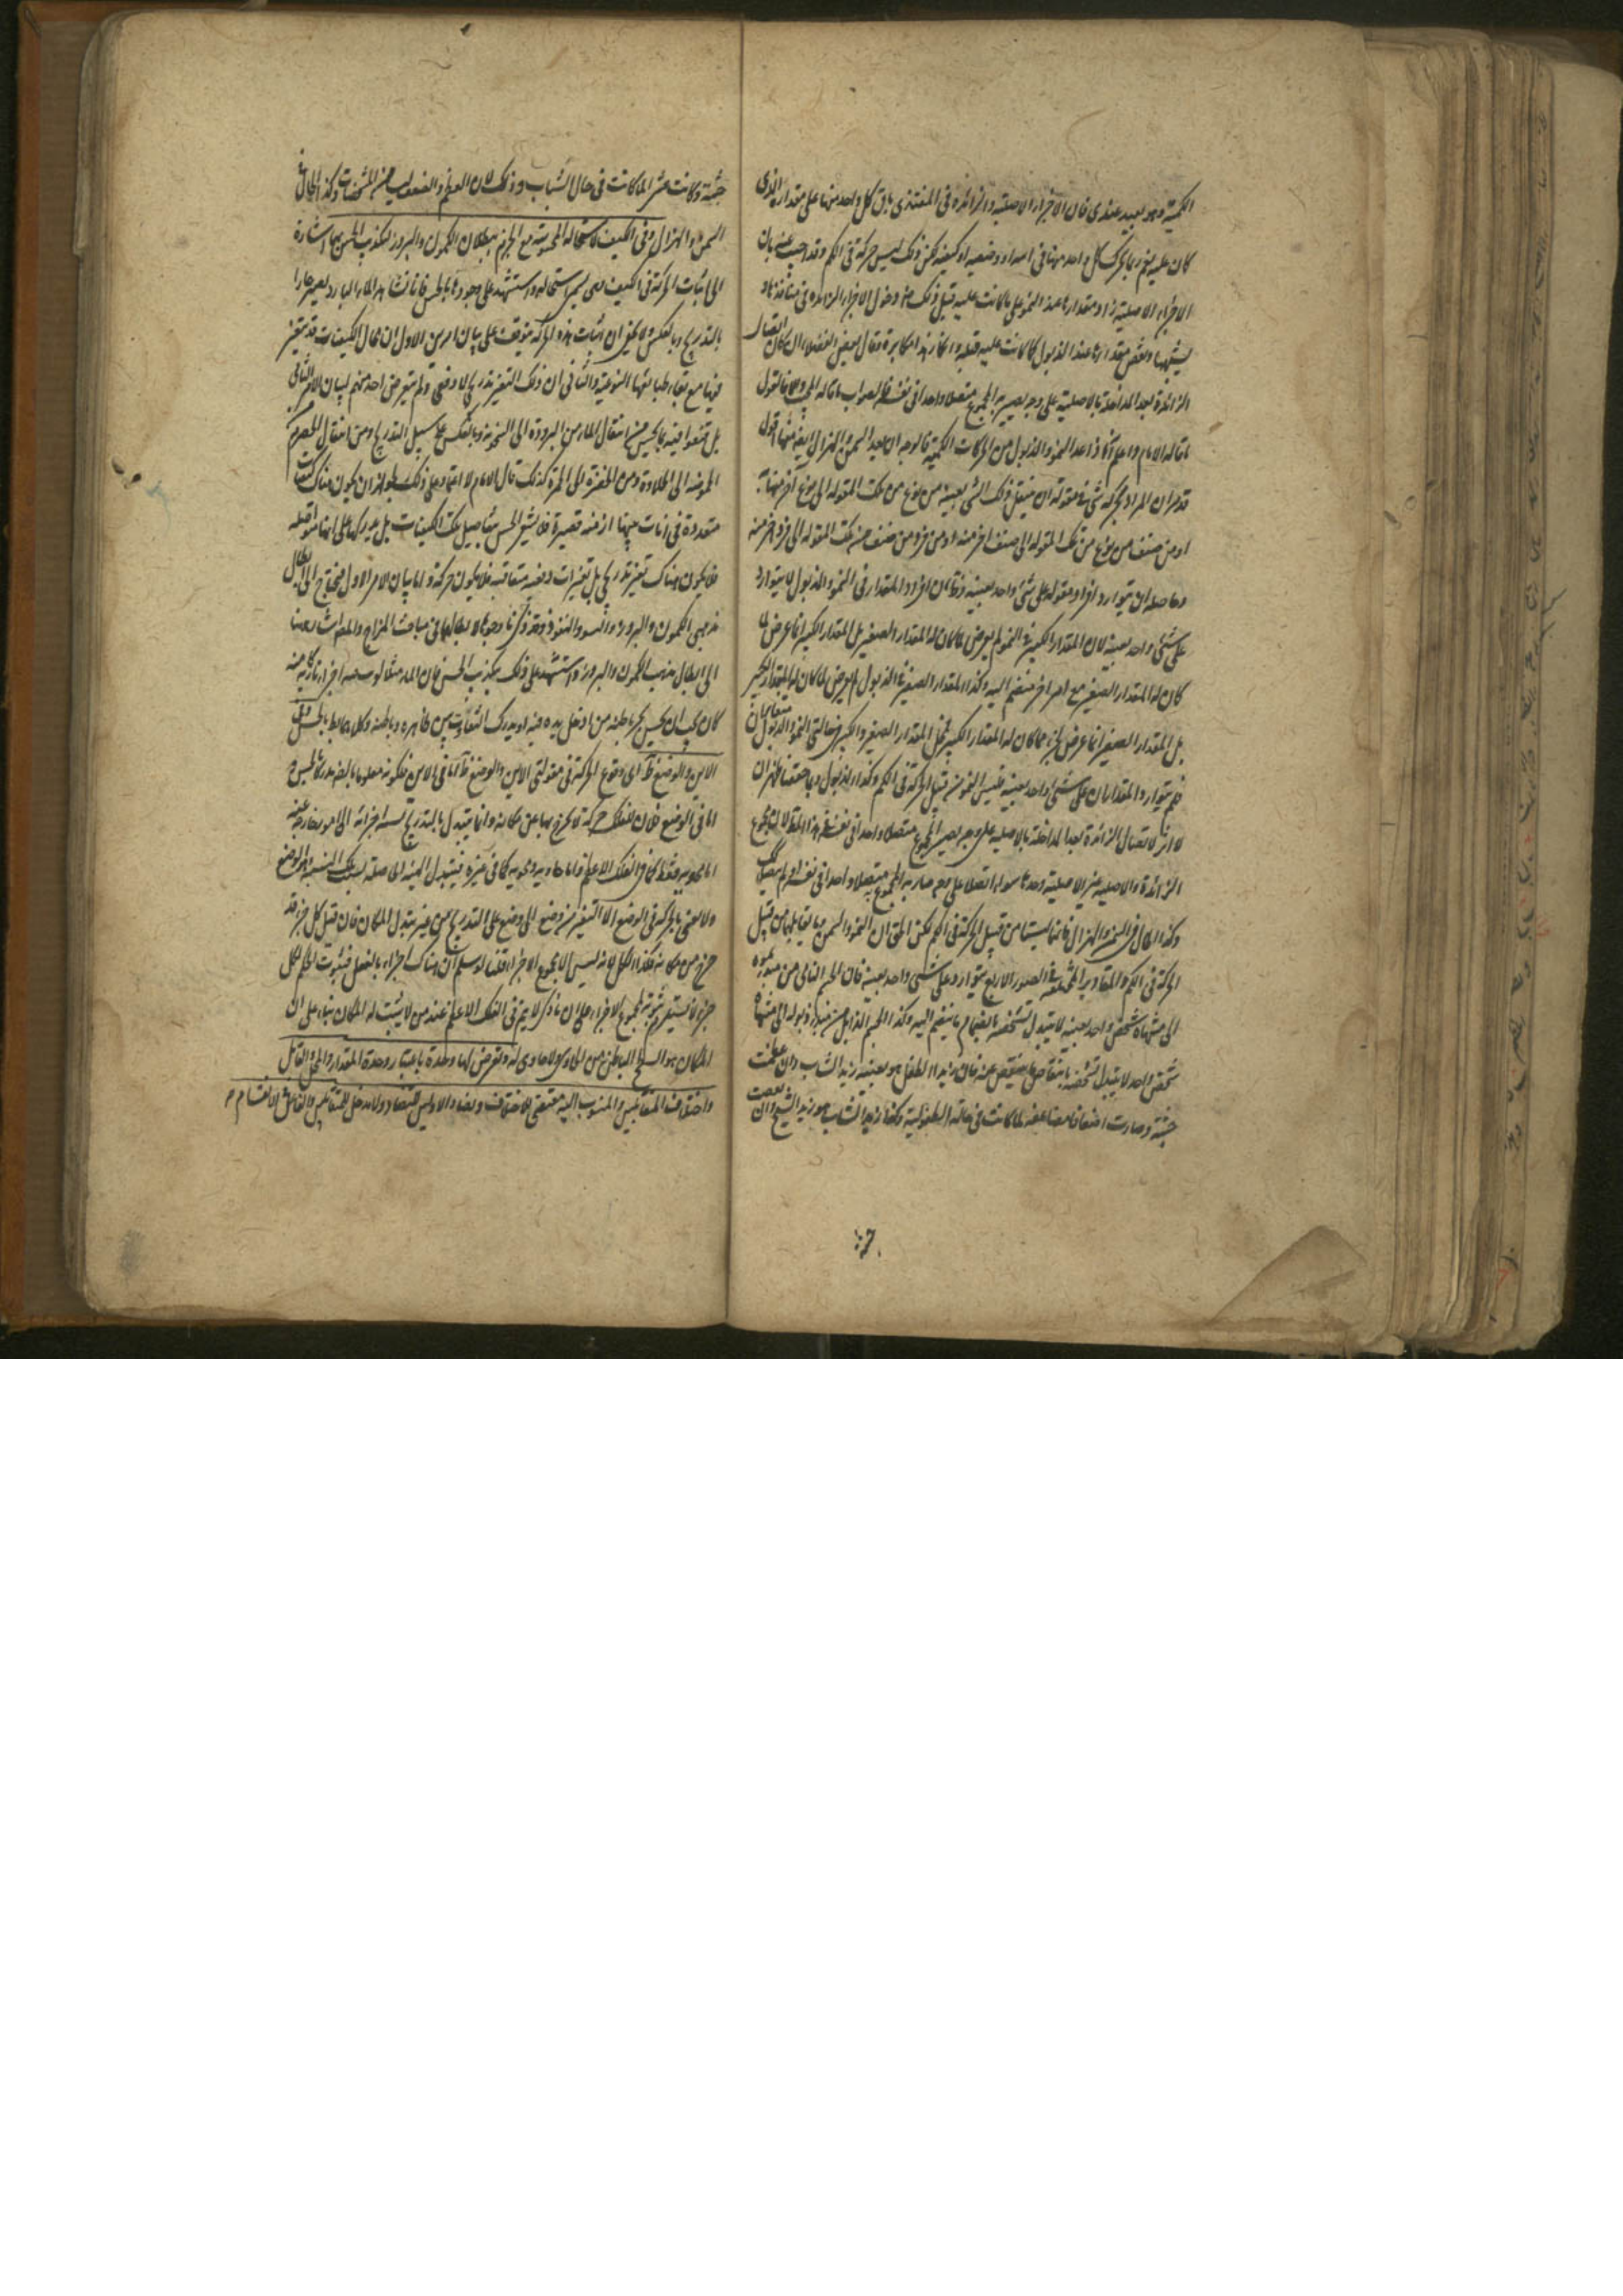 الكمية وهو بعيد عندى فان الاجزاء الاصلية والزائدة فى المغتذى باق كل واحد منها على مقداره الذى
كان عليه نعم ربما يحرك كل واحد منها فى اينه او وضعه او كيفه لكن ذلك ليس حركة فى الكم وقد اجيب عنه بان
الاجزاء الاصلية زاد مقدارها عند النمو على ما كانت عليه قبل ذلك عند دخول الاجزاء الزائدة فى منافذها و
تشبهها بها ونقص مقدارها عند الذبول عما كانت عليه قبله وانكار هذا مكابرة وقال بعض الفضلاء ان كان اتصال
الزائدة بعد المداخلة بالاصلية على وجه يصير به المجموع متصلا واحدا فى نفسه فالصواب ما قاله المجيب والا فالقول
ما قاله الامام واعلم انه اذا عد النمو والذبول من الحركات الكمية فالوجه ان يعد السمن والهزال ايضا منها اقول
قد مر ان المراد بحركة شىء فى مقولة ان ينتقل ذلك الشىء بعينه من نوع من تلك المقولة الى نوع آخر منها
او من صنف من نوع من تلك المقولة الى صنف اخر منه او من فرد من صنف من تلك المقولة الى فرد اخر منه
وحاصله ان يتوارد افراد مقولة على شىء واحد بعينه وظ ان افراد المقدار فى النمو والذبول لا يتوارد
على شىء واحد بعينه لان المقدار الكبير فى النمو لم يعرض لما كان له المقدار الصغير بل المقدار الكبير انما عرض لما
كان له المقدار الصغير مع امر اخر منضم اليه وكذا المقدار الصغير فى الذبول لم يعرض لما كان له المقدار الكبير
بل المقدار الصغير انما عرض لجزء مما كان له المقدار الكبير فمحل المقدار الصغير والكبير فى حالتى النمو والذبول متغايران
فلم يتوارد المقداران على شىء واحد بعينه فليس النمو من قبيل الحركة فى الكم وكذا الذبول وبما حققنا ظهر ان
لا اثر لاتصال الزائدة بعد المداخلة بالاصلية على وجه يصير المجموع متصلا واحدا فى نفسه فى هذا المط لان مجموع
الزائدة والاصلية غير الاصلية وحدها سواء اتصلا على وجه صار به المجموع متصلا واحدا فى نفسه او لم يتصلا
وكذا الحال فى السمن والهزال فانهما ليستا من قبيل الحركة فى الكم لكن الحق ان النمو والسمن وما يقابلهما من قبيل
الحركة فى الكم والمقادير المختلفة فى الصور الاربع يتوارد على شىء واحد بعينه فان الجسم النامى من مبدء نموه
الى منتهاه شخص واحد بعينه لا يتبدل تشخصه بانضمام ما ينضم اليه وكذا الجسم الذابل من مبدء ذبوله الى منتهاه
شخص واحد لا يتبدل تشخصه بانتقاص ما ينتقص عنه فان زيدا الطفل هو بعينه زيد الشاب وان عظمت
جثته وصارت اضعافا مضاعفة لما كانت فى حالة الطفولية وكذا زيد الشاب هو زيد الشيخ وان نقصت
جثته وكانت عشر لما كانت فى حال الشباب وذلك لان العظم والصغر ليسا من المشخصات وكذا الحال فى
السمن والهزال وفى الكيف للاستحالة المحسوسة مع الجزم ببطلان الكمون والبروز لتكذيب الحس بهما اشارة
الى اثبات الحركة فى الكيف وهى يسمى استحالة واستشهد على وجودها بالحس فانا نشاهد الماء البارد يصير حارا
بالتدريج وبالعكس ولا يخفى ان اثبات هذه الحركة يتوقف على بيان امرين الاول ان محال الكيفيات قد يتغير
فيها مع بقاء طبائعها النوعية والثانى ان ذلك التغير تدريجى لا دفعى ولم يتعرض احد منهم لبيان الامر الثانى
بل قنعوا فيه بما يحس من انتقال الماء من البرودة الى السخونة وبالعكس على سبيل التدريج ومن انتقال الحصرم من
الحموضة الى الحلاوة ومن الخضرة الى الحمرة كذلك قال الامام لا اعتماد على ذلك لجواز ان يكون هناك كيفيات
متعددة فى انات بينها ازمنة قصيرة فلا يشعر الحس بتفاصيل تلك الكيفيات بل يدركها على انها متواصلة
فلا يكون هناك تغير تدريجى بل تغيرات دفعية متعاقبة فلا يكون حركة واما بيان الامر الاول فيحتاج الى ابطال
مذهبى الكمون والبروز والفشو والنفوذ وقد ذكرنا وجوها لابطالهما فى مباحث المزاج والمصنف اشار ههنا
الى ابطال مذهب الكمون والبروز واستشهد على ذلك بتكذيب الحس فان الماء مثلا لو كمنت فيه اجزاء نارية
كان يجب ان يحس بحر باطنه من ادخل يده فيه او يدرك التفاوت بين ظاهره وباطنه وكلاهما باطل بالحس وفى
الاين والوضع ظ اى وقوع الحركة فى مقولتى الاين والوضع ظ اما فى الاين فلكونه معلوما بالضرورة بالحس و
اما فى الوضع فلان للفلك حركة لا يخرج بها عن مكانه وانما يتبدل بالتدريج نسبة اجزائه الى امور خارجة عنه
اما محوية فقط كما فى الفلك الاعظم واما حاوية ومحوية كما فى غيره فيتبدل الهيئة الحاصلة بسبب تلك النسبة وهى الوضع
ولا نعنى بالحركة فى الوضع الا التغير من وضع الى وضع على التدريج من غير تبدل المكان فان قيل كل جزء قد
خرج من مكانه فكذا الكل لانه ليس الا مجموع الاجزاء قلنا لو سلم ان هناك اجزاء بالفعل فثبوت الحكم لكل
جزء لا يستلزم ثبوته لمجموع الاجزاء على ان ما ذكر لا يتم فى الفلك الاعظم عند من لا يثبت له المكان بناء على ان
المكان هو السطح الباطن من الحاوى ولا حاوى له وتعرض لها وحدة باعتبار وحدة المقدار والمحل والقابل
واختلاف المتقابلين والمنسوب اليه مقتضى للاختلاف وتضاد الاولين التضاد ولا مدخل للمتقابلين والفاعل فى الانقسام